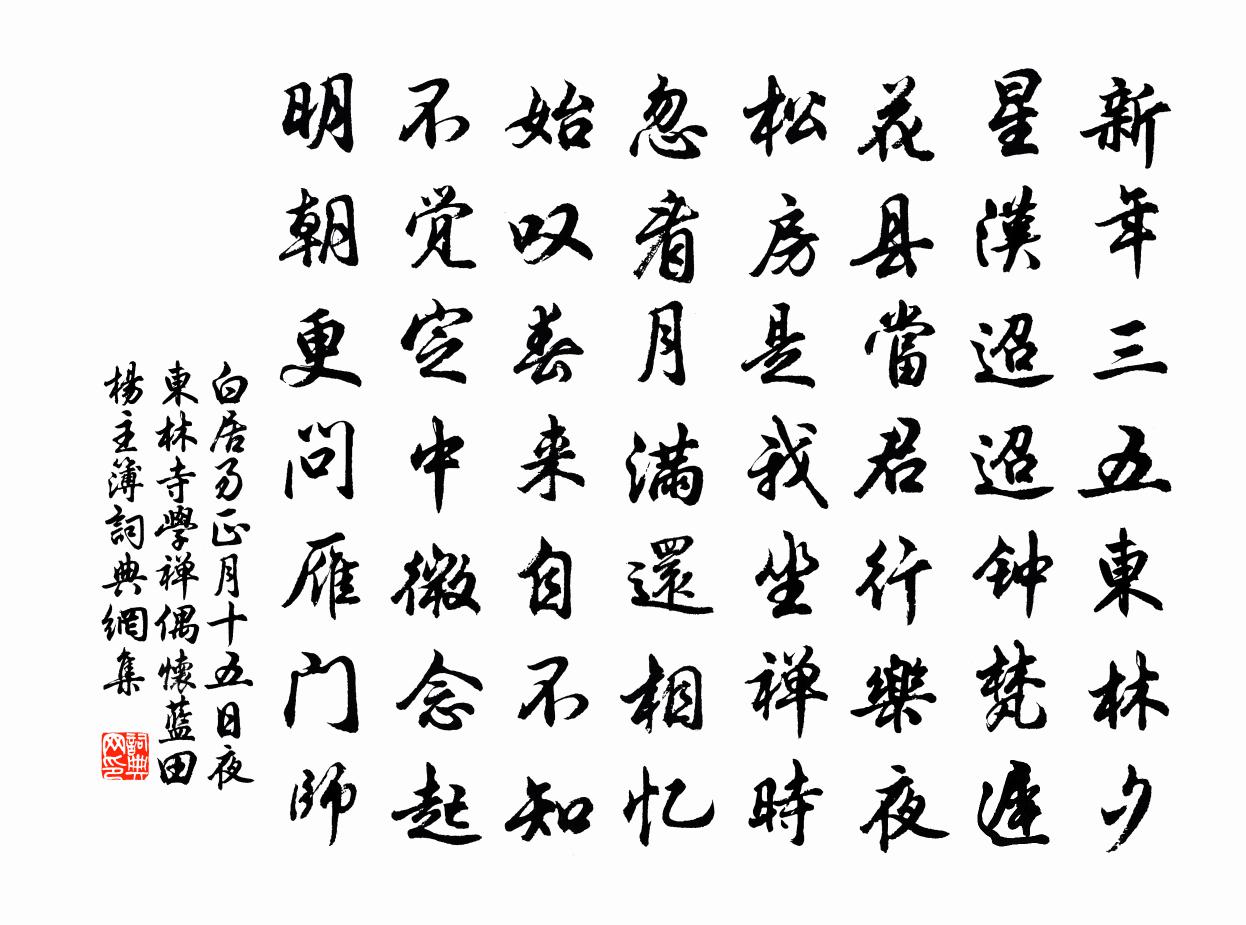 新年三五東林夕
星漢迢迢钟梵遲
花县當君行樂夜
松房是我坐禅時
忽看月满還相忆
始叹春来自不知
不觉定中微念起
明朝更问雁门師
白居易正月十五日夜
東林寺學禅偶懷藍田
楊主簿詞典網集
詞典网印